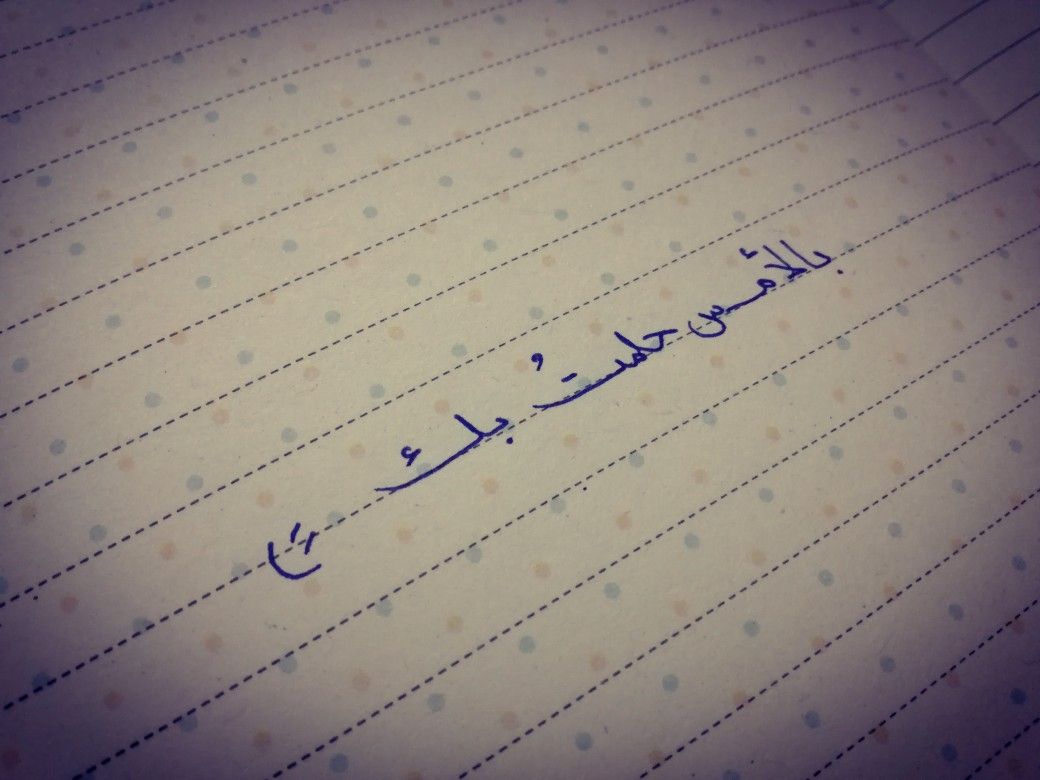 بالأمس حلمتُ بك